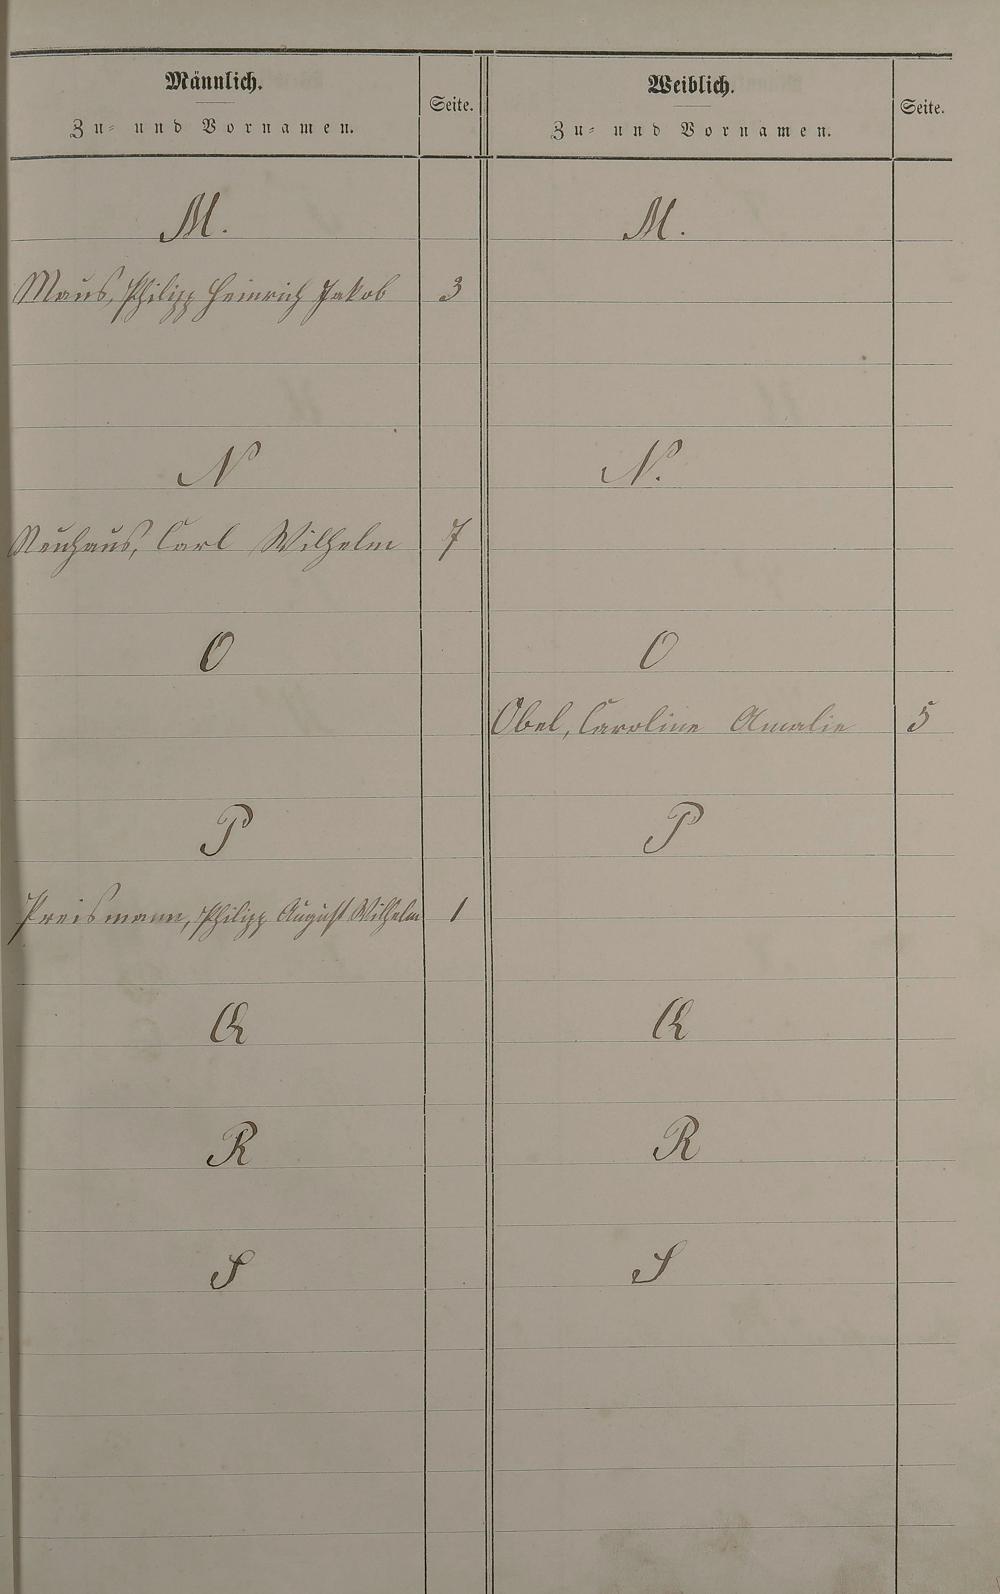 Männlich.
Zu- und Vornamen.
Seite.
Weiblich.
Zu- und Vornamen.
Seite.
M.
M.
Maus, Philipp Heinrich Jakob 3
N
N.
Neuhaus, Carl Wilhelm 7
O
O
Obel, Caroline Amalie 5
P
P
Preismann, Philipp August Wilhelm 1
Q
Q
R
R
S
S